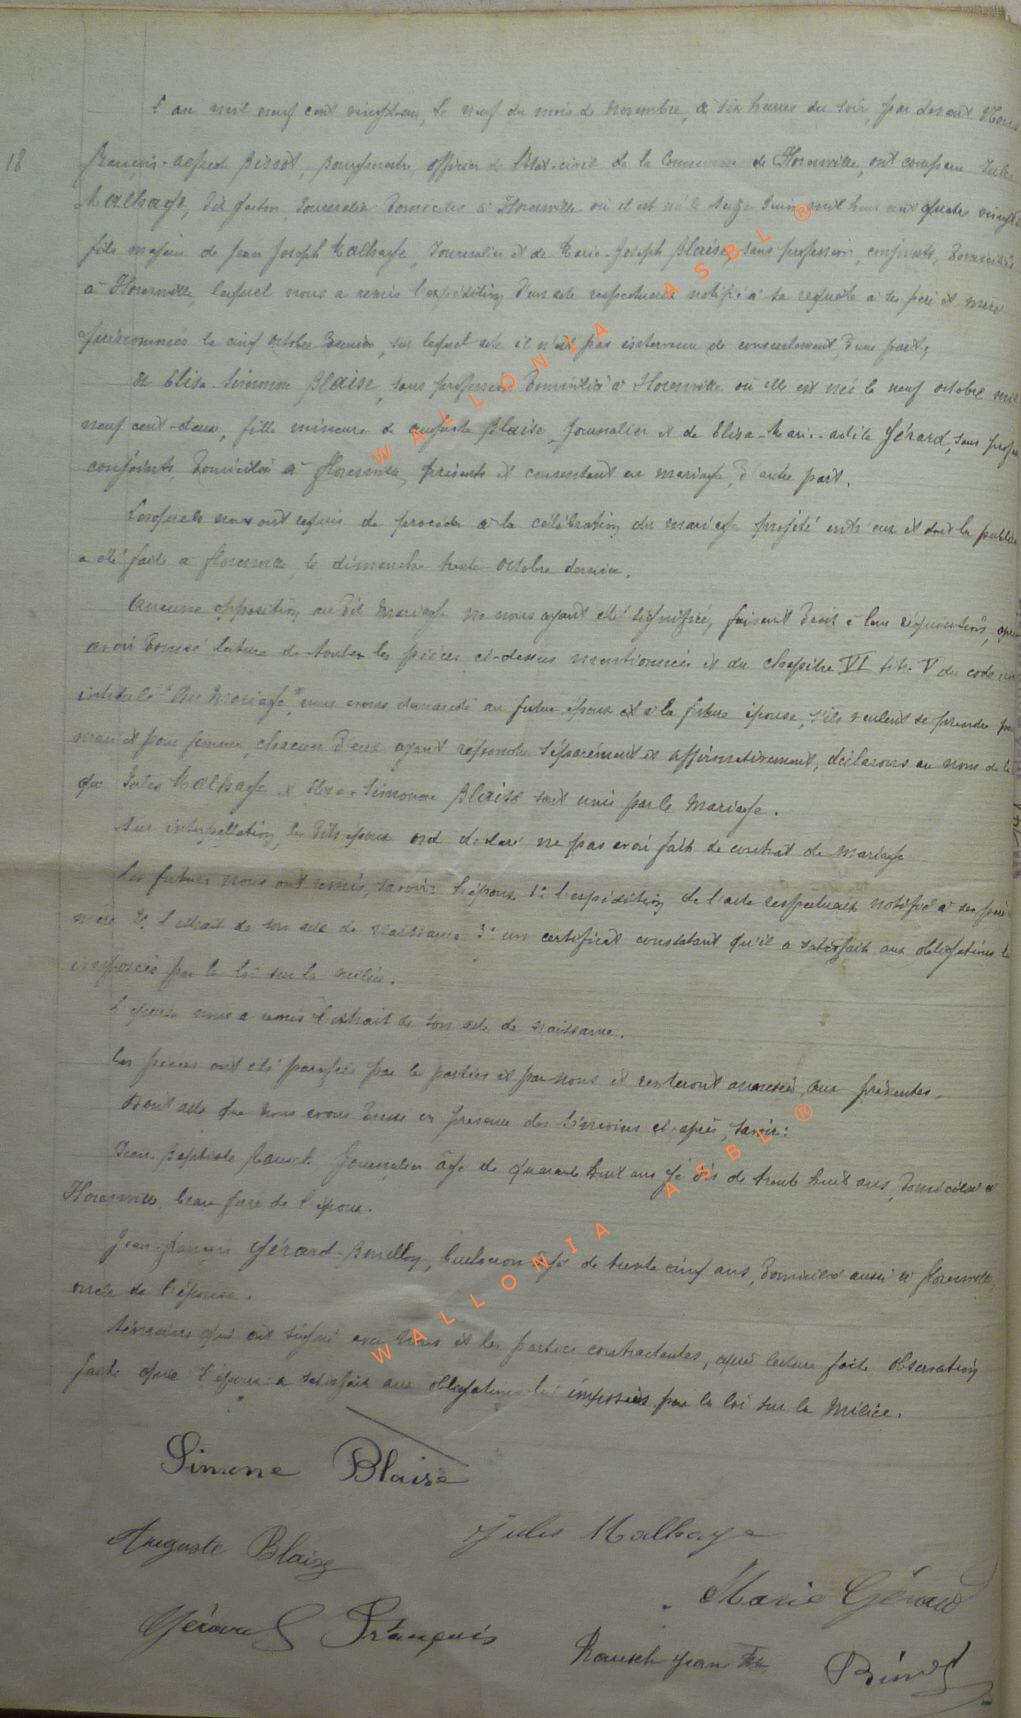 L'an mil neuf cent vingt-un, le neuf du mois de novembre, à six heures du soir, par devant Nous
18
François-Alfred Bissot, bourgmestre, officier de l'état-civil de la Commune de Florenville, ont comparu Jules
Malhage, dit Gaston, journalier domicilié à Florenville où il est né le seize Juin mil huit cent quatre vingt
fils majeur de Jean Joseph Malhage, journalier et de Marie-Joseph Blaise, sans profession, conjoints, domiciliés
à Florenville lequel nous a remis l'expédition d'un acte respectueux notifié à sa requête à ses père et mère
prénommés le cinq octobre dernier, sur lequel acte il n'est pas intervenu de consentement, d'une part;
Et Elisa Simonne Blaise, sans profession domiciliée à Florenville où elle est née le neuf octobre mil
neuf cent-deux, fille mineure de Auguste Blaise, journalier et de Elisa-Marie Gérard, sans prof
conjoints domiciliés à Florenville, présents et consentant au mariage, d'autre part.
Lesquels nous ont requis de procéder à la célébration du mariage projeté entre eux et dont la publica
a été faite à Florenville, le dimanche trente octobre dernier.
Aucune opposition au dit mariage ne nous ayant été signifiée, faisant droit à leur réquisition, après
avoir donné lecture de toutes les pièces ci-dessus mentionnées et du chapitre VI tit. V du code
intitulé "Du Mariage", nous avons demandé au futur époux et à la future épouse, s'ils veulent se prendre pour
mari et pour femme, chacun d'eux ayant répondu séparément et affirmativement, déclarons au nom de la
que Jules Malhage et Elisa-Simonne Blaise sont unis par le Mariage.
Sur interpellation, les dits époux ont déclaré ne pas avoir fait de contrat de mariage
Les futurs nous ont remis, savoir: L'époux 1° l'expédition de l'acte respectueux notifié à ses père
mère 2° l'extrait de son acte de naissance 3° un certificat constatant qu'il a satisfait aux obligations lui
imposées par la loi sur la milice.
L'épouse nous a remis l'extrait de son acte de naissance.
Les pièces ont été paraphées par les parties et par nous et resteront annexées aux présentes.
Dont acte que nous avons dressé en présence des témoins ci-après, savoir:
Jean-Baptiste Rausch journalier âgé de quarante huit ans de trente huit ans, domicilié à
Florenville, beau frère de l'époux.
Jean-François Gérard-Bouillon, âgé de trente cinq ans, domicilié aussi à Florenville
oncle de l'épouse.
témoins qui ont signé avec nous et les parties contractantes, après lecture faite observation
faite que l'époux a satisfait aux obligations lui imposées par la loi sur la Milice.
Simone Blaise
Jules Malhage
Auguste Blaise
Marie Gérard
Gérard François
Rausch Jean Bte
Bissot
WALLONIA ASBL ®
WALLONIA ASBL ®